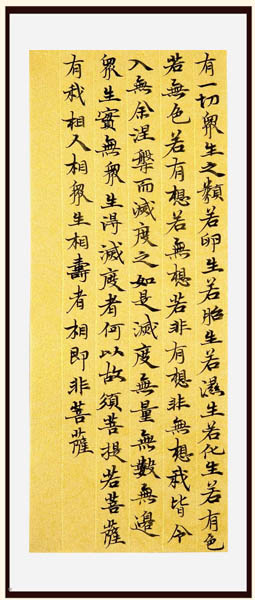 有一切衆生之類若卵生若胎生若濕生若化生若有色
若無色若有想若無想若非有想非無想我皆令
入無余涅槃而滅度之如是滅度無量無數無邊
衆生實無衆生得滅度者何以故須菩提若菩薩
有我相人相衆生相壽者相即非菩薩